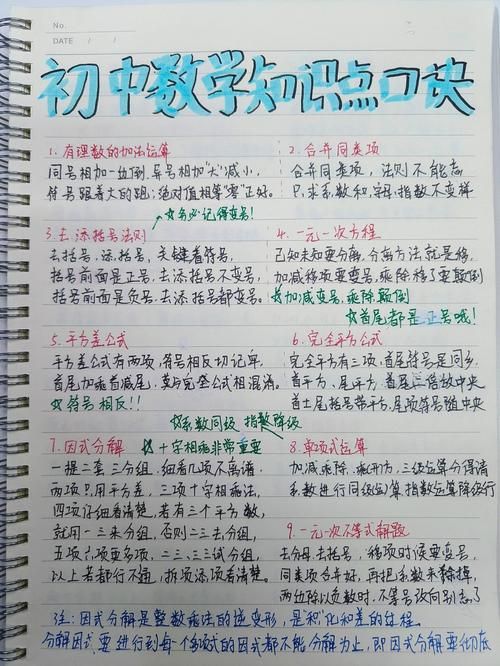 No.
DATE / /
初中数学知识点口诀
1. 有理数的加法运算
同号相加一边倒,异号相加"大"减小,
符号跟着大的跑;绝对值相等"零"正好。
2. 合并同类项
合并同类项,法则不能忘
只求系数和字母,指数不变样
☆务必记得变号!
3. 去、添括号法则
去括号,添括号,关键看符号,
括号前面是正号,去添括号不变号,
括号前面是负号,去添括号都变号。
4. 一元一次方程
已知未知要分离,分离方法就是移,
加减移项要变号,乘除移了要颠倒
☆加减变号,乘除颠倒
☆首尾都是正号哦!
5. 平方差公式
平方差公式有两项,符号相反切记牢,
首尾加乘首减尾,莫与完全公式相混淆。
☆符号相反!!
6. 完全平方公式
完全平方有三项,首尾符号是同乡,
首平方、尾平方,首尾二倍放中央
首±尾括号带平方,尾项符号随中央
☆系数同级 指数降级
7. 因式分解
☆十字相乘非常重要
一提二套三分组,细看几项不离谱,
两项只用平方差,三项十字相乘法,
四项仔细看清楚,若有三个平方数,
就用一三来分组,否则二三去分组,
五项、六项更多项,二三、三三试分组,
以上若都行不通,拆项添项看清楚。
8. 单项式运算
加减乘除、乘开方,三级运算分得清
系数进行同级运算,指数运算降级行
9. 一元一次不等式解题
去分母、去括号,移项时候要变号,
同类项合并好,再把系数来除掉,
两边除以负数时,不等号改向别忘了
注:因式分解是整数乘法的逆变形,是积化和差的过程
分解因式要进行到每个多项式的因式都不能分解为止,即因式分解要彻底